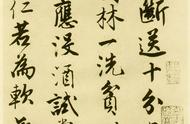 斷送十分
林一洗貧
應沒酒試
仁若為軟